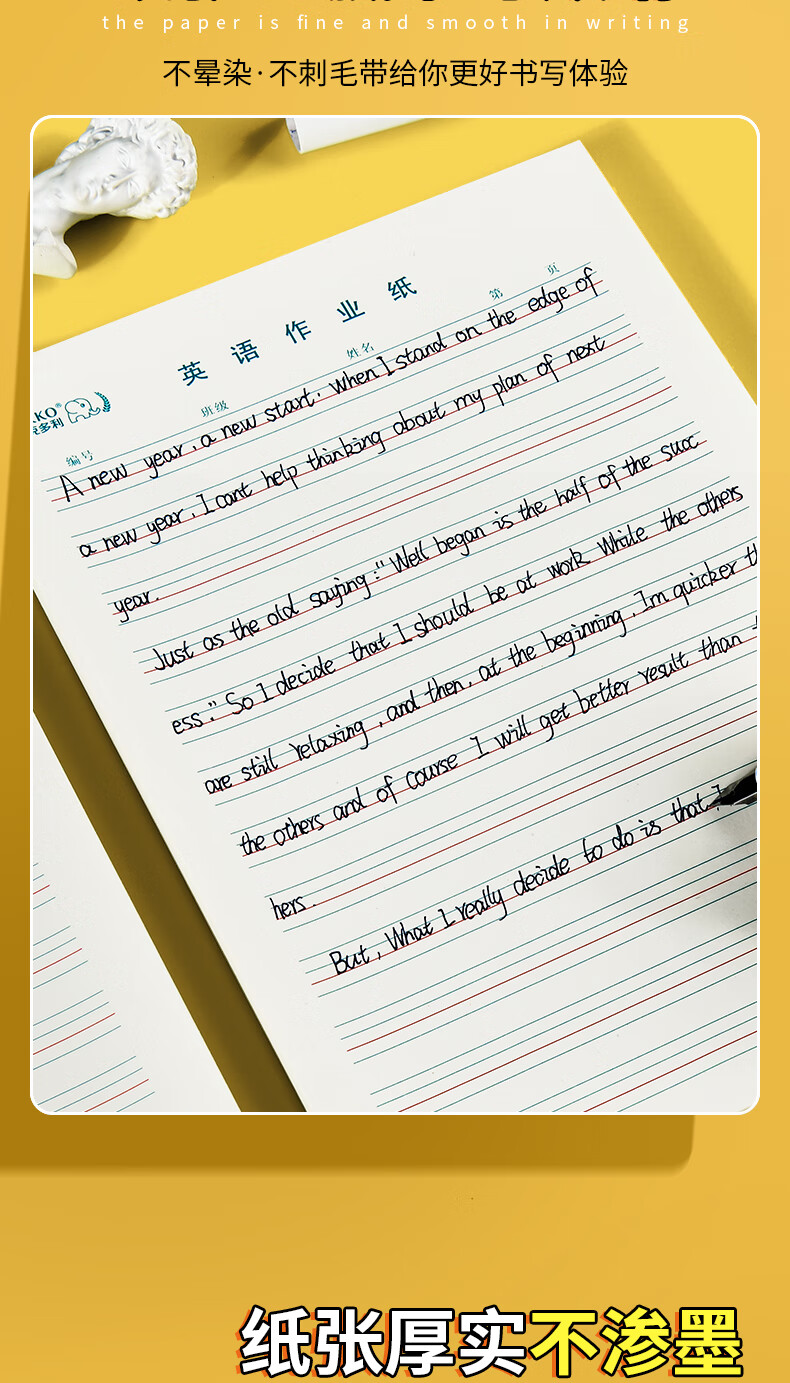 the paper is fine and smooth in writing
不晕染·不刺毛带给你更好书写体验
英语作业纸
第 页
姓名
班级
编号
KO®
多利
A new year, a new start. When I stand on the edge of
a new year, I cant help thinking about my plan of next
year.
Just as the old saying:"Well began is the half of the succ
ess." So I decide that I should be at work While the others
are still relaxing, and then, at the beginning, Im quicker
the others and of course I will get better result than
hers.
But, What I really decide to do is that I
纸张厚实不渗墨